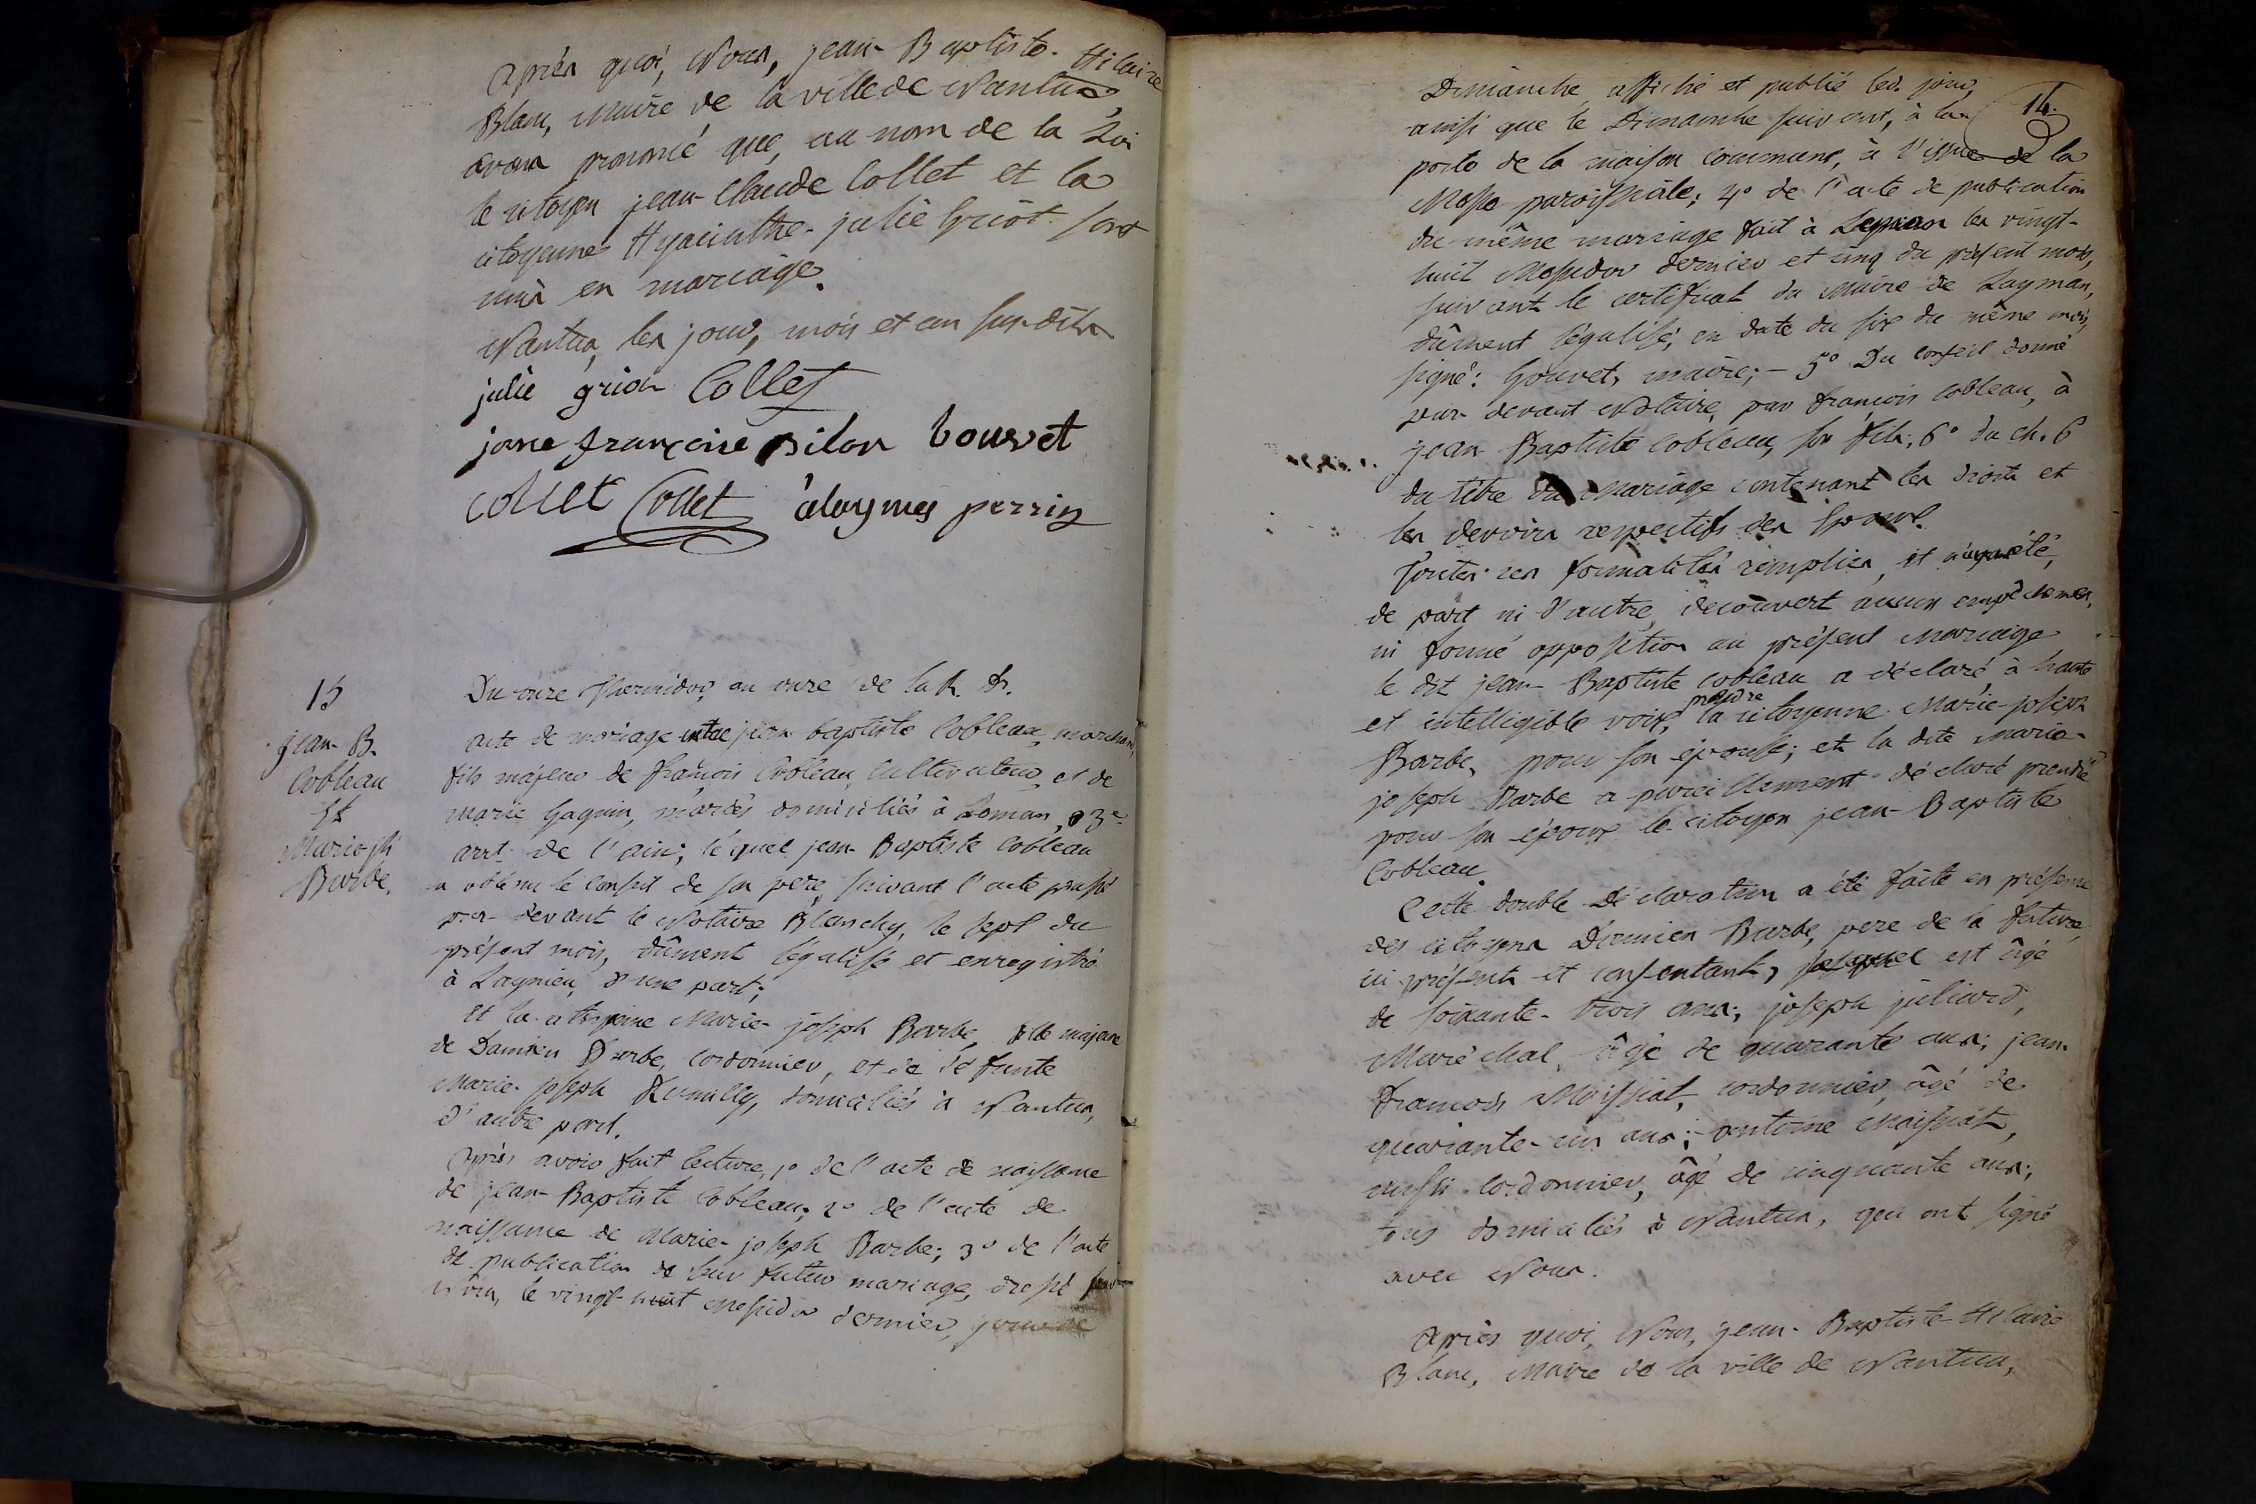 après quoi, Nous, jean-Baptiste-Hilaire
Blanc, Maire de la ville de Nantua,
avons prononcé que, au nom de la Loi
le citoyen jean-Claude Collet et la
citoyenne Hyacinthe-julie Guiot sont
unis en mariage.
Nantua, les jour, mois et an sus-dits
julie Collet
françoise bouvet
Collet Collet perrin
15
jean-B.
Cobleau
Et
Marie-jph
Barbe.
Du onze Thermidor, an onze de la R. fr.
acte de mariage entre jean baptiste Cobleau, marchand,
fils majeur de françois Cobleau, Cultivateur, et de
marie Gaguin, mariés domiciliés à 3e
arrt de l'ain; lequel jean-Baptiste Cobleau
a obtenu le conseil de son pere, suivant l'acte passé
par-devant le Notaire Blanchy, le sept du
présent mois, dûment légalisé et enregistré
à Lagnieu, d'une part;
et la citoyenne Marie-joseph Barbe, fille majeure
de Damien Barbe, cordonnier, et de défunte
Marie-joseph Rumilly, domiciliés à Nantua,
d'autre part.
Après avoir fait lecture, 1° de l'acte de naissance
de jean-Baptiste Cobleau; 2° de l'acte de
naissance de Marie-joseph Barbe; 3° de l'acte
de publication de leur futur mariage, dressé par
Nous, le vingt-huit messidor dernier, jour de
14.
Dimanche, affiché et publié led. jour,
ainsi que le Dimanche suivant, à la
porte de la maison commune, à l'issue de la
Messe paroissiale; 4° de l'acte de publication
du même mariage fait à les vingt-
huit Messidor dernier et cinq du présent mois,
suivant le certificat du Maire de
dûment légalisé, en date du six du même mois,
signé: Gouvet, maire; - 5° Du conseil donné
par-devant Notaire, par françois Cobleau, à
jean-Baptiste Cobleau, son fils, 6° du ch. 6
du titre du Mariage contenant les droits et
les devoirs respectifs des Epoux.
Toutes ces formalités remplies, et n'ayant été,
de part ni d'autre, découvert aucun empêchement,
ni formé opposition au présent mariage
le dit jean-Baptiste Cobleau a déclaré, à haute
et intelligible voix, prendre la citoyenne Marie-joseph
Barbe, pour son épouse; et la dite Marie-
joseph Barbe a pareillement déclaré prendre
pour son époux le citoyen jean-Baptiste
Cobleau.
Cette double Déclaration a été faite en présence
des citoyens Damien Barbe, pere de la future,
ici présent et consentant, lequel est âgé
de soixante-trois ans; joseph juliard,
Maréchal, âgé de quarante ans; jean-
françois Moissiat, cordonnier, âgé de
quarante-un ans; antoine Moissiat,
aussi cordonnier, âgé de cinquante ans;
tous domiciliés à Nantua, qui ont signé
avec Nous.
Après quoi, Nous, jean-Baptiste-Hilaire
Blanc, Maire de la ville de Nantua,